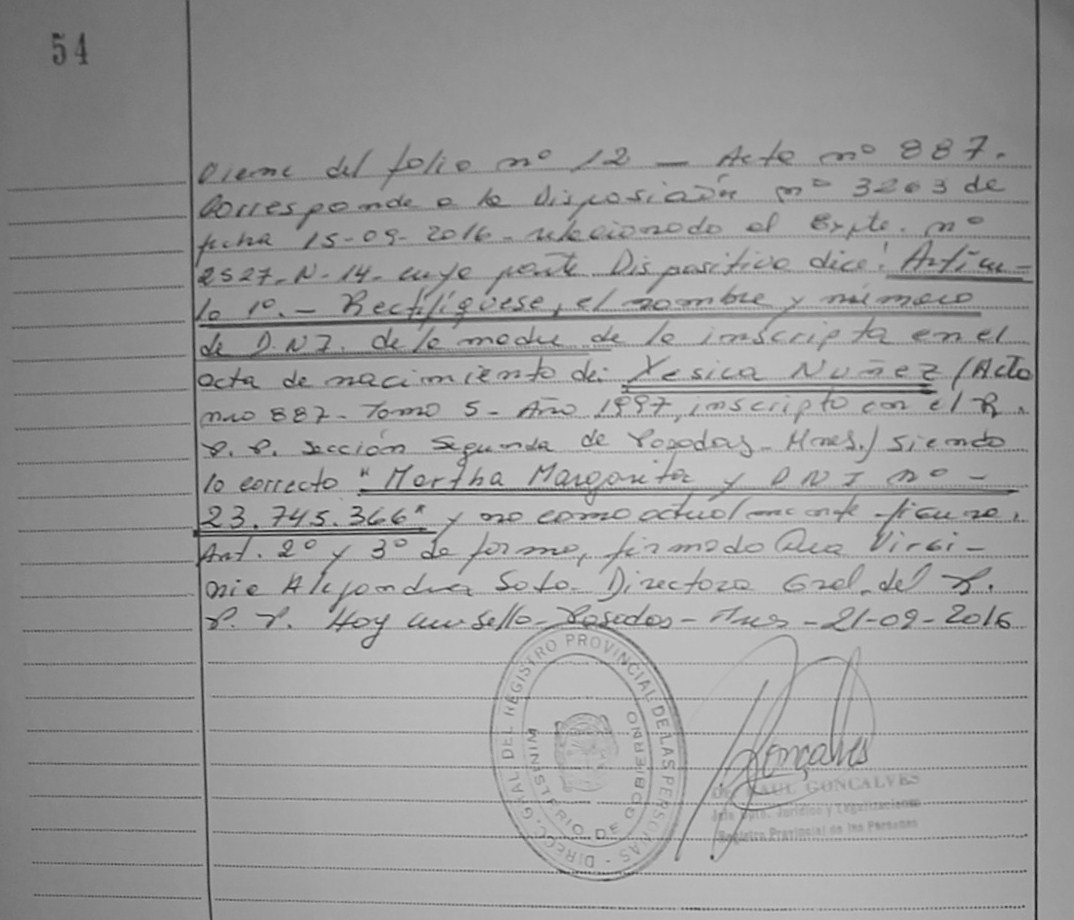 54
Viene del folio nº 12 — Acta nº 887.
Corresponde a la Disposición nº 3263 de
fecha 15-09-2016- relacionado al Expte. nº
2527-N-14- cuya parte Dispositiva dice: Artícu-
lo 1º.- Rectifíquese, el nombre y número
de D.N.I. de la madre de la inscripta en el
acta de nacimiento de: Yesica Nuñez (Acta
nro 887- Tomo 5- Año 1997, inscripto en el R.
P. P. Sección Segunda de Posadas- Mnes.) siendo
lo correcto "Martha Margarita y DNI nº -
23.745.366" y no como actualmente figura.
Art. 2º y 3º de forma, firmado Dra Virgi-
nia Alejandra Soto- Directora Gral. del R.
P. P. Hay un sello- Posadas- Mnes - 21-09-2016
DIRECC. GRAL DEL REGISTRO PROVINCIAL DE LAS PERSONAS
MINISTERIO DE GOBIERNO
Gonçalves
RAUL GONCALVES
Jefe Dpto. Jurídico y Legalizaciones
Registro Provincial de las Personas